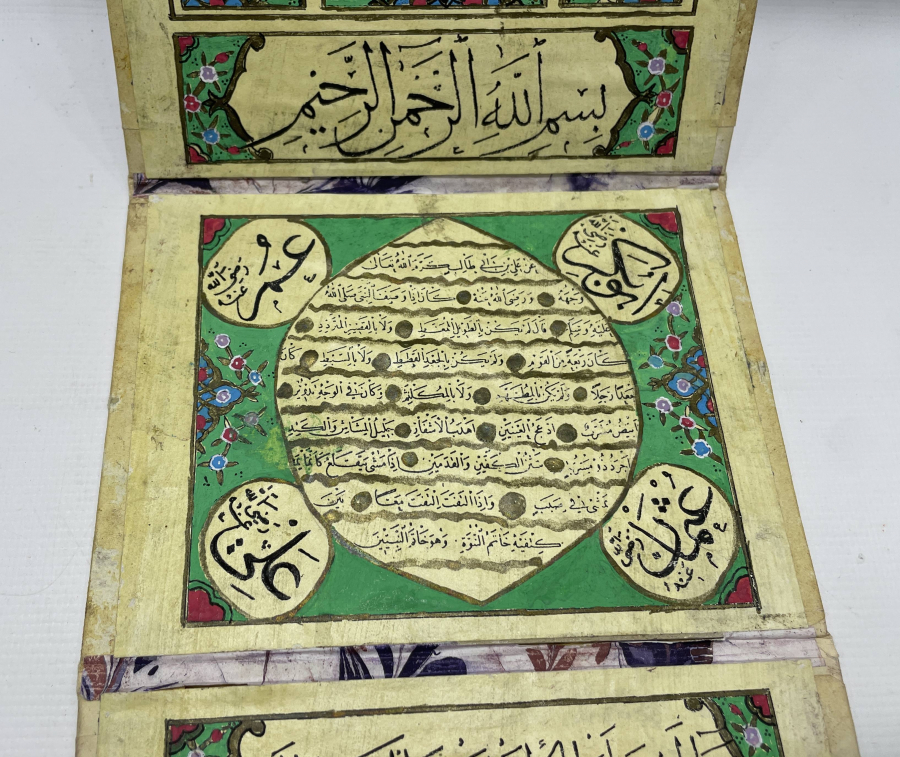 بِسْمِ اللَّهِ الرَّحْمَنِ الرَّحِيمِ
ابو بكر رضي الله عنه
عمر رضي الله عنه
عن علي بن ابي طالب كرم الله تعالى
وجهه ورضي الله عنه كان اذا وصف النبي صلى الله
عليه وسلم قال لم يكن بالطويل الممغط ولا بالقصير المتردد
كان ربعة من القوم ولم يكن بالجعد القطط ولا بالسبط كان
جعدا رجلا ولم يكن بالمطهم ولا بالمكلثم وكان في الوجه تدوير
ابيض مشرب ادعج العينين اهدب الاشفار جليل المشاش والكتد
اجرد ذو مسربة شثن الكفين والقدمين اذا مشى يتقلع كانما
يمشي في صبب واذا التفت التفت معا بين
كتفيه خاتم النبوة وهو خاتم النبيين
عثمان رضي الله عنه
علي رضي الله عنه